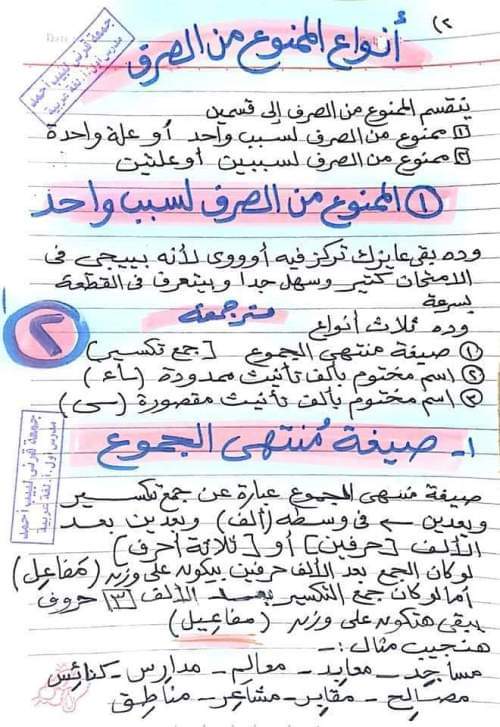 (٢
أنواع الممنوع من الصرف
جمعة قرني لبيب أحمد
مدرس أول أ. لغة عربية
ينقسم الممنوع من الصرف إلى قسمين
١ ممنوع من الصرف لسبب واحد أو علة واحدة
٢ ممنوع من الصرف لسببين أو علتين
١ الممنوع من الصرف لسبب واحد
وده بقى عايزك تركز فيه أوووى لأنه بييجى فى
الامتحان كتير وسهل جدا وبيتعرف فى القطعة
بسرعة
مترجمعة
وده ثلاث أنواع
٢
١ صيغة منتهى الجموع [جمع تكسير]
٢ اسم مختوم بألف تأنيث ممدودة (ـاء)
٣ اسم مختوم بألف تأنيث مقصورة (ـى)
جمعة قرني لبيب أحمد
مدرس أول أ. لغة عربية
١- صيغة مُنتهى الجموع
صيغة منتهى الجموع عبارة عن جمع تكسير
وبعدين ← فى وسطه (ألف) وبعدين بعد
الألف [حرفين] أو [ثلاثة أحرف]
لو كان الجمع بعد الألف حرفين بيكون على وزن (مَفَاعِل)
أما لو كان جمع التكسير بعد الألف [٣] حروف
يبقى هتكون على وزن (مفاعيل)
هنجيب مثال :-
مساجد - معابد - معالم - مدارس - كنائس
مصالح - مقابر - مشاعر - مناطق